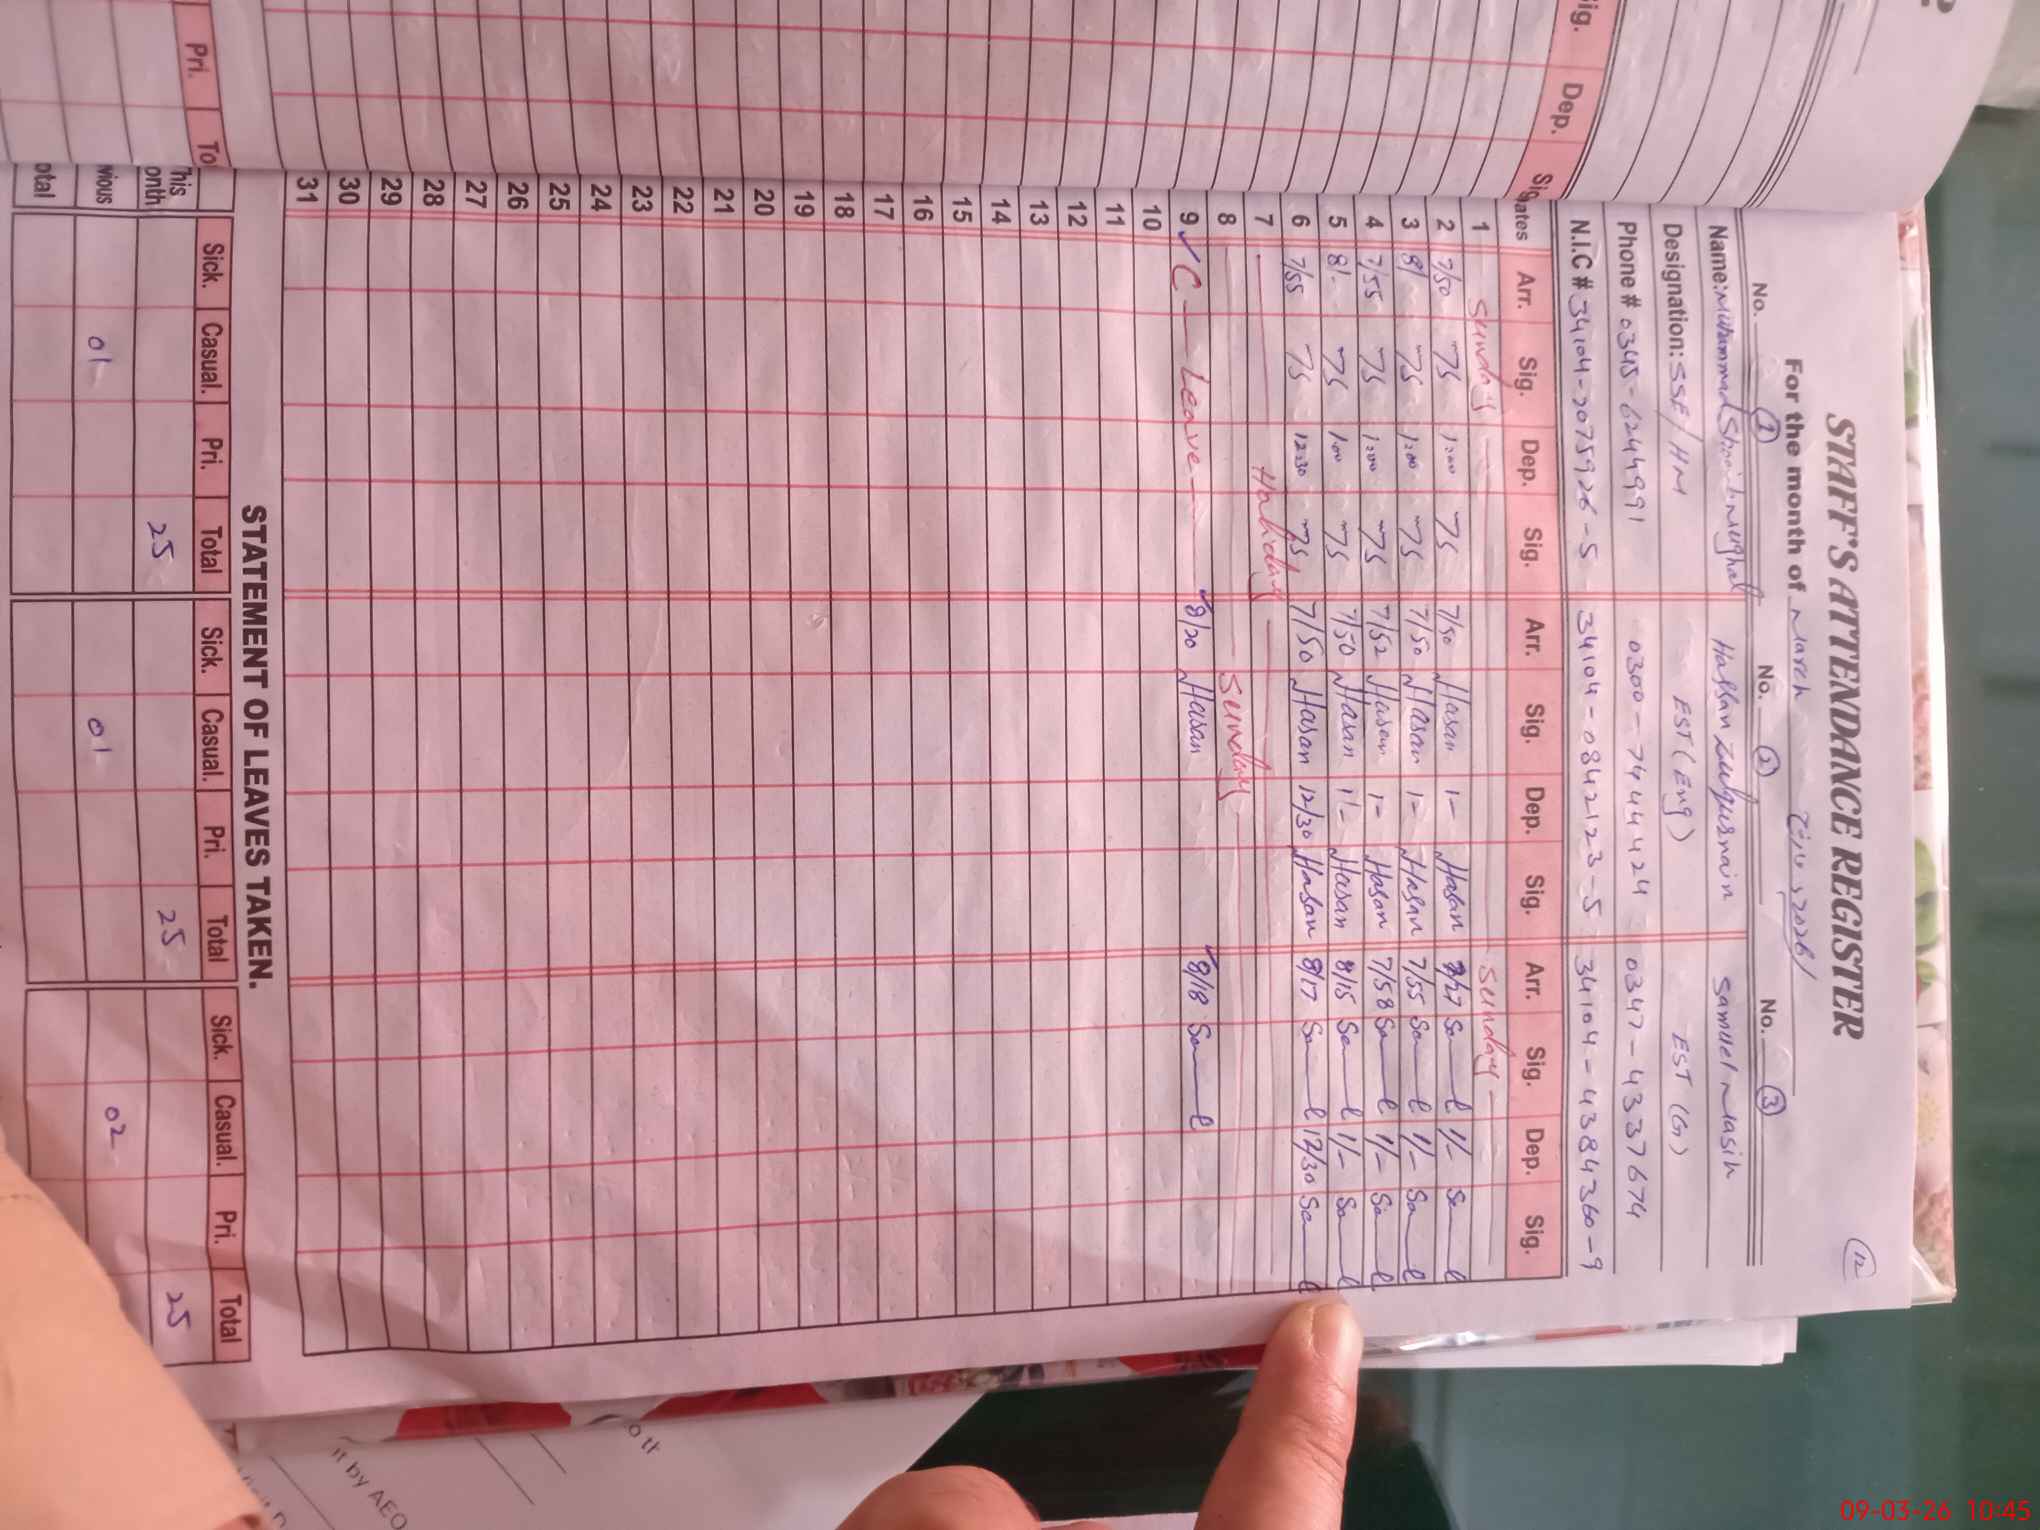 STAFF'S ATTENDANCE REGISTER
12
For the month of March 2026
No. 1 No. 2 No. 3
Name: Muhammad Shoaib Mughal Hassan Zulqurnain Samuel Masih
Designation: SSE/HM EST (Eng) EST (G)
Phone # 0345-6244991 0300-7444424 0347-4337674
N.I.C # 34104-2075926-5 34104-0842123-5 34104-4384360-9
Dates Arr. Sig. Dep. Sig. Arr. Sig. Dep. Sig. Arr. Sig. Dep. Sig.
1 Sunday Sunday
2 7/50 1:00 7/50 Hasan 1- Hasan 1/-
3 8/ 1:00 7/50 Hasan 1- Hasan 7/55 1/-
4 7/55 1:00 7/52 Hasan 1- Hasan 7/58 1/-
5 8/- 1:00 7/50 Hasan 1/- Hasan 8/15 1/-
6 7/55 12:30 7/50 Hasan 12/30 Hasan 8/17 12/30
7 Holiday
8 Sunday
9 C Leave 8/20 Hasan 8/18
10
11
12
13
14
15
16
17
18
19
20
21
22
23
24
25
26
27
28
29
30
31
STATEMENT OF LEAVES TAKEN.
Sick. Casual. Pri. Total Sick. Casual. Pri. Total Sick. Casual. Pri. Total
his onth 25 25 25
vious 01 01 02
otal
ig. Dep. Sig
Pri. To
o th
it by AEO
09-03-26 10:45